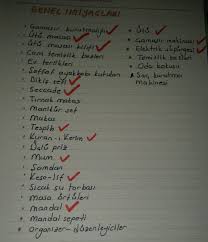 GENEL İHTİYAÇLAR
Çamaşır kurutmalığı
Ütü masası
Ütü masası kılıfı
Cam temizlik bezleri
Ev terlikleri
Şeffaf ayakkabı kutuları
Dikiş seti
Seccade
Tırnak makas
Manikür set
Makas
Tespih
Kuran-ı Kerim
Üçlü priz
Mum
Şamdan
Kese-lif
Sıcak su torbası
Masa örtüleri
Mandal
Mandal sepeti
Organizer-düzenleyiciler
Ütü
Çamaşır makinası
Elektrik süpürgesi
Temizlik bezleri
Oda kokusu
Saç kurutma
makinesi